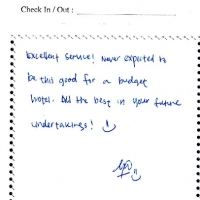 Check In / Out :
Excellent service! Never expected to
be this good for a budget
hotel. All the best in your future
undertakings! :)